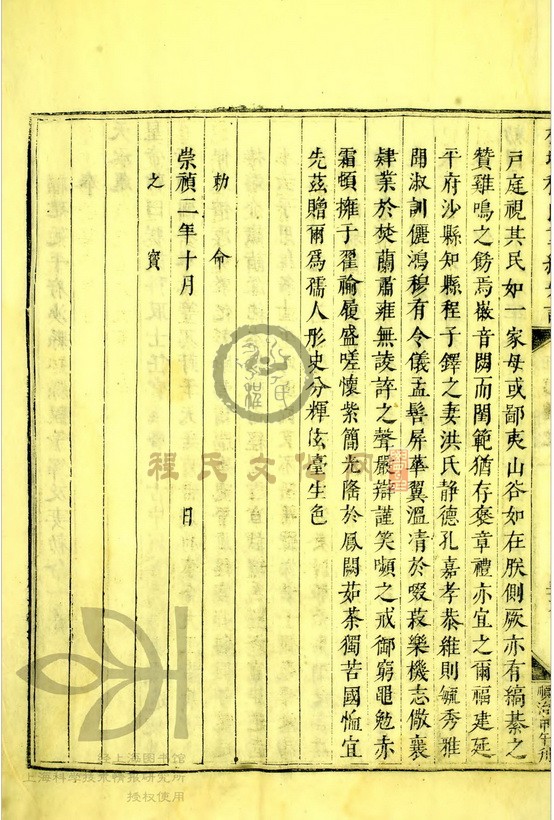 戸庭視其民如一家母或鄙夷山谷如在朕側厥亦有縞綦之
贊雞鳴之飭焉徽音闕而閨範猶存褒章禮亦宜之爾福建延
平府沙縣知縣程子鐸之妻洪氏静德孔嘉孝恭維則毓秀雅
閈淑訓儷鴻穆有令儀孟髻屏華翼溫凊於啜菽樂機志儆襄
肄業於焚蘭肅雍無諓誶之聲嚴辯謹笑嚬之戒御窮黽勉赤
霜頓擁于翟褕履盛嗟懷紫簡光隆於鳳闕茹荼獨苦國恤宜
先茲贈爾爲孺人彤史分輝佉臺生色
勅命
崇禎二年十月 日
之寶
順治甲午刊
程氏文化网
经上海图书馆
上海科学技术情报研究所
授权使用